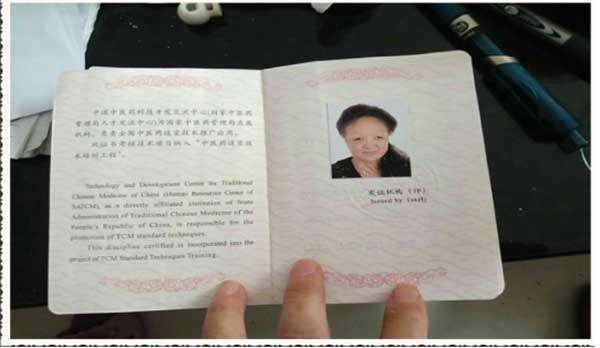 中国中医药科技开发交流中心(国家中医药
管理局人才交流中心)为国家中医药管理局直属
机构，负责全国中医药适宜技术推广应用。
此证书考核技术项目纳入“中医药适宜技
术培训工程”。
Technology and Development Center for Traditional
Chinese Medicine of China (Human Resources Center of
SATCM), as a directly affiliated institution of State
Administration of Traditional Chinese Medicine of the
People's Republic of China, is responsible for the
promotion of TCM standard techniques.
This discipline certified is incorporated into the
project of TCM Standard Techniques Training.
发证机构（印）
Issued by (seal)